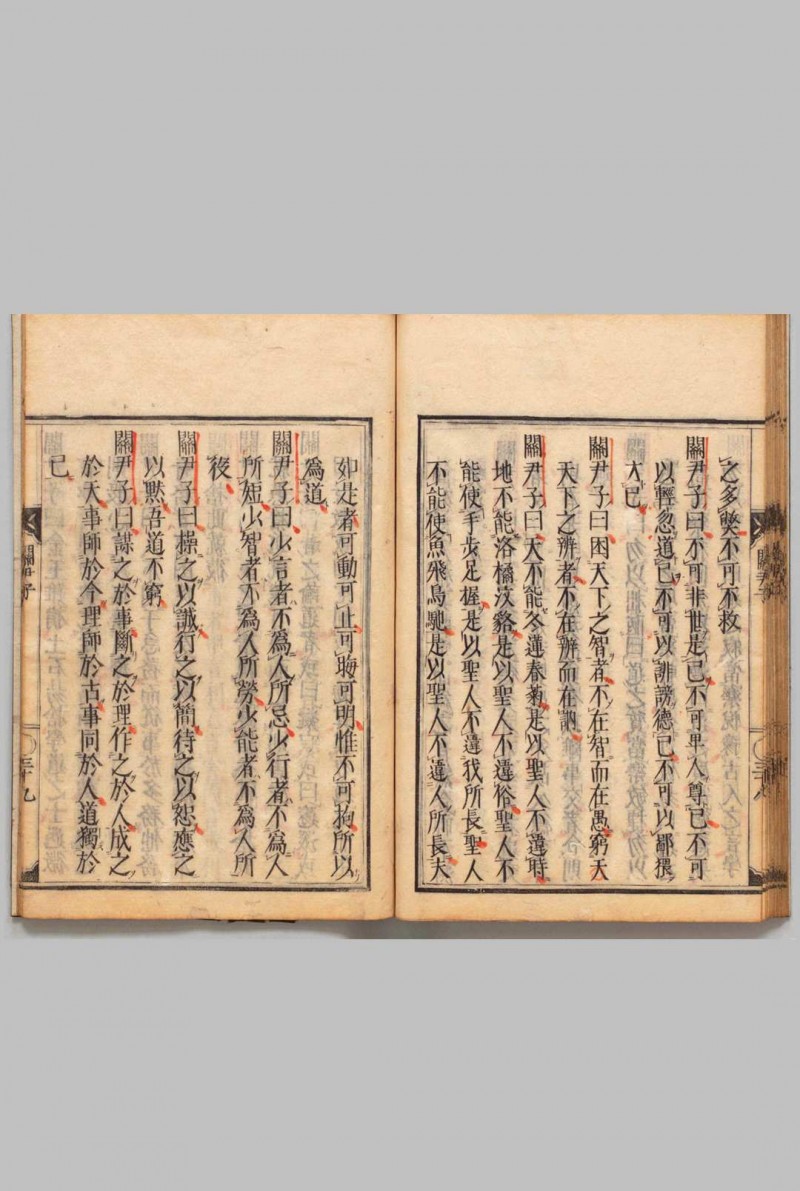 之多弊不可不救
關尹子曰不可非世是已不可卑人尊已不可
以輕忽道已不可以誹謗德已不可以鄙猥
才已
關尹子曰困天下之智者不在智而在愚窮天
天下之辨者不在辨而在訥
關尹子曰天不能冬蓮春菊是以聖人不違時
地不能洛橘汶貉是以聖人不違俗聖人不
能使手步足握是以聖人不違我所長聖人
不能使魚飛鳥馳是以聖人不違人所長夫
關尹子
三十八
如是者可動可止可晦可明惟不可拘所以
爲道
關尹子曰少言者不爲人所忌少行者不爲人
所短少智者不爲人所勞少能者不爲人所
役
關尹子曰操之以誠行之以簡待之以恕應之
以默吾道不窮
關尹子曰謀之於事斷之於理作之於人成之
於天事師於今理師於古事同於人道獨於
已
關尹子
三十九